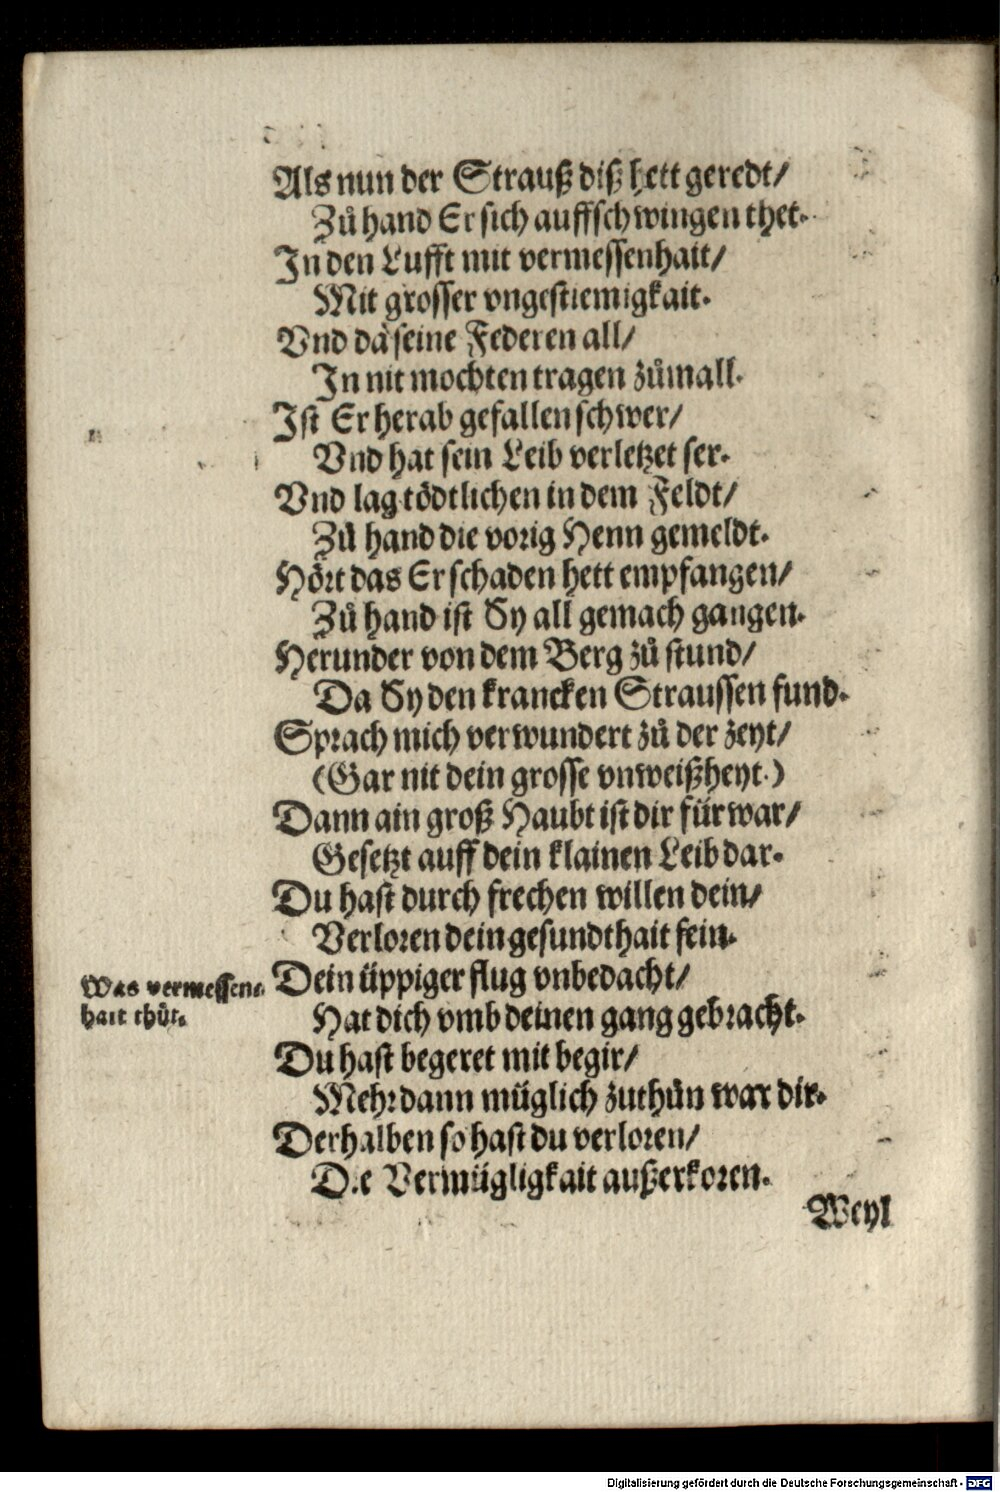 Als nun der Strauß diß hett geredt/
Zů hand Er sich auffschwingen thet.
In den Lufft mit vermessenhait/
Mit grosser vngestiemigkait.
Vnd da seine Federen all/
In nit mochten tragen zůmall.
Ist Er herab gefallen schwer/
Vnd hat sein Leib verletzet ser.
Vnd lag tödtlichen in dem Feldt/
Zů hand die vorig Henn gemeldt.
Hört das Er schaden hett empfangen/
Zů hand ist Sy all gemach gangen.
Herunder von dem Berg zů stund/
Da Sy den krancken Straussen fund.
Sprach mich verwundert zů der zeyt/
(Gar nit dein grosse vnweißheyt.)
Dann ain groß Haubt ist dir fürwar/
Gesetzt auff dein klainen Leib dar.
Du hast durch frechen willen dein/
Verloren dein gesundthait fein.
Was vermessen-
hait thůt.
Dein üppiger flug vnbedacht/
Hat dich vmb deinen gang gebracht.
Du hast begeret mit begir/
Mehr dann müglich zuthůn war dir.
Derhalben so hast du verloren/
Die Vermügligkait außerkoren.
Weyl
Digitalisierung gefördert durch die Deutsche Forschungsgemeinschaft - DFG